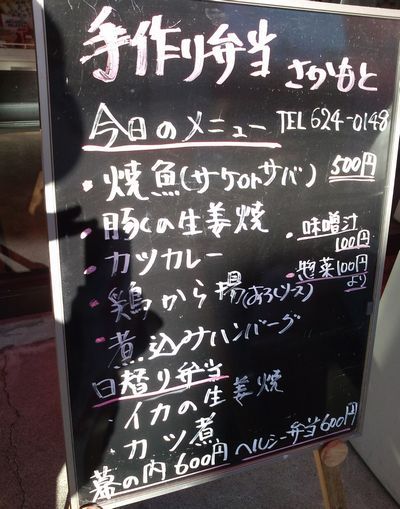 手作り弁当 さかもと
今日のメニュー TEL 624-0148
・焼魚(サケorサバ) 500円
・豚くの生姜焼
・味噌汁
100円
・カツカレー
・惣菜100円
より
・鶏から揚(おろしソース)
・煮込みハンバーグ
日替り弁当
・イカの生姜焼
・カツ煮
幕の内600円 ヘルシー弁当600円